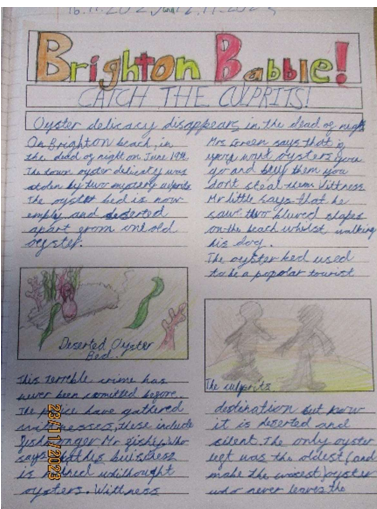 Brighton Babble!
CATCH THE CULPRITS!
Oyster delicacy disappears in the dead of night
On Brighton beach, in
the dead of night on June
The town oyster delicaty was
stolen by two mystery
The oyster bed is now
empty and deserted
apart from one old
oyster.
Deserted Oyster
Bed.
This terrible crime has
never been before.
The police have gathered
witnesses, these include
fishmonger Mr fishy. Who
says his
is
oysters. Wittness
Mrs Green says that if
you want oysters you
go and buy them you
don't steal them. Wittness
Mr little says that he
saw two blured
on the beach whilst walking
his dog.
The oyster bed used
to be a popular tourist
The culprits
destination but know
it is deserted and
silent. The only oyster
left was the oldest (and
make the wisest) oyster
who never leaves the
23/11/2023